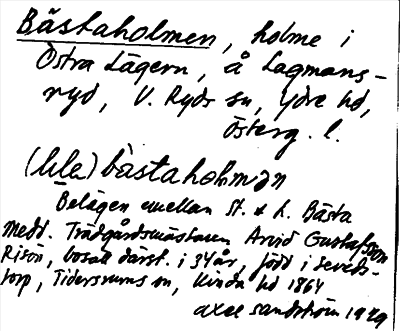 Båstaholmen, holme i
Östra Lägern, å Lagmans-
ryd, V. Ryds sn, Ydre hd,
Österg. l.
(lile) båstahol­mən
Belägen mellan St. & L. Båsta
Medd. Trädgårdsmästaren Arvid Gustafsson
Risön, bosatt därst. i 34 år, född i Svens-
torp, Tidersrums sn, Kinda hd 1864
Axel Sandström 1929